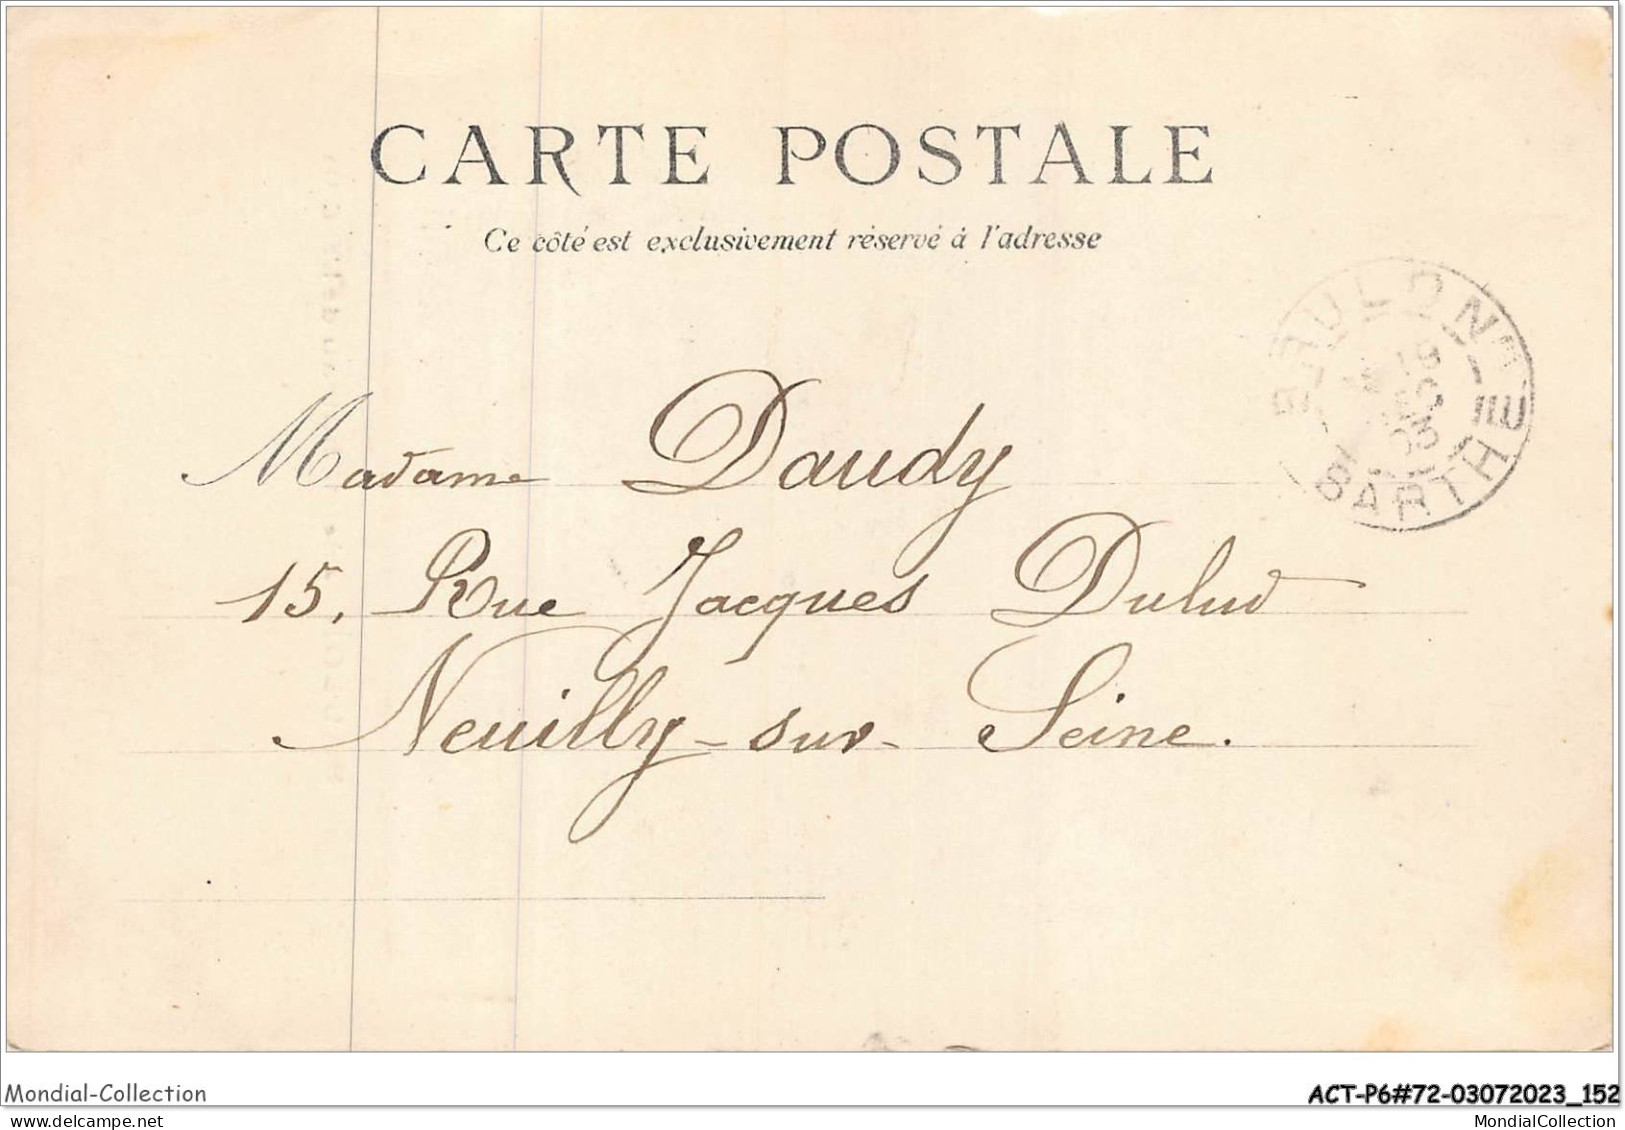 CARTE POSTALE
Ce côté est exclusivement réservé à l'adresse
SARTHE
Madame Daudy
15, Rue Jacques Dulud
Neuilly-sur-Seine.
Mondial-Collection
ACT-P6#72-03072023_152
www.delcampe.net
MondialCollection